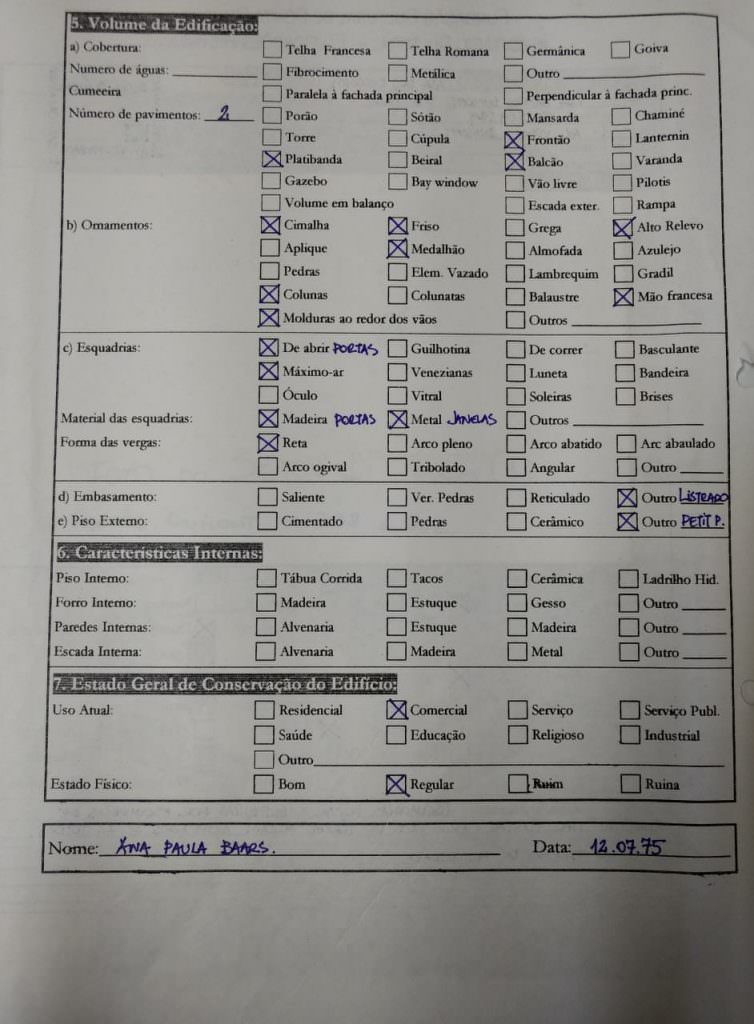 5. Volume da Edificação:
a) Cobertura: ☐ Telha Francesa ☐ Telha Romana ☐ Germânica ☐ Goiva
Numero de águas: ____ ☐ Fibrocimento ☐ Metálica ☐ Outro ____
Cumeeira ☐ Paralela à fachada principal ☐ Perpendicular à fachada princ.
Número de pavimentos: 2 ☐ Porão ☐ Sótão ☐ Mansarda ☐ Chaminé
☐ Torre ☐ Cúpula ☒ Frontão ☐ Lanternin
☒ Platibanda ☐ Beiral ☒ Balcão ☐ Varanda
☐ Gazebo ☐ Bay window ☐ Vão livre ☐ Pilotis
☐ Volume em balanço ☐ Escada exter. ☐ Rampa
b) Ornamentos: ☒ Cimalha ☒ Friso ☐ Grega ☒ Alto Relevo
☐ Aplique ☒ Medalhão ☐ Almofada ☐ Azulejo
☐ Pedras ☐ Elem. Vazado ☐ Lambrequim ☐ Gradil
☒ Colunas ☐ Colunatas ☐ Balaustre ☒ Mão francesa
☒ Molduras ao redor dos vãos ☐ Outros ____
c) Esquadrias: ☒ De abrir PORTAS ☐ Guilhotina ☐ De correr ☐ Basculante
☒ Máximo-ar ☐ Venezianas ☐ Luneta ☐ Bandeira
☐ Óculo ☐ Vitral ☐ Soleiras ☐ Brises
Material das esquadrias: ☒ Madeira PORTAS ☒ Metal JANELAS ☐ Outros ____
Forma das vergas: ☒ Reta ☐ Arco pleno ☐ Arco abatido ☐ Arc abaulado
☐ Arco ogival ☐ Tribolado ☐ Angular ☐ Outro ____
d) Embasamento: ☐ Saliente ☐ Ver. Pedras ☐ Reticulado ☒ Outro LISTRADO
e) Piso Externo: ☐ Cimentado ☐ Pedras ☐ Cerâmico ☒ Outro PETIT P.
6. Características Internas:
Piso Interno: ☐ Tábua Corrida ☐ Tacos ☐ Cerâmica ☐ Ladrilho Hid.
Forro Interno: ☐ Madeira ☐ Estuque ☐ Gesso ☐ Outro ____
Paredes Internas: ☐ Alvenaria ☐ Estuque ☐ Madeira ☐ Outro ____
Escada Interna: ☐ Alvenaria ☐ Madeira ☐ Metal ☐ Outro ____
7. Estado Geral de Conservação do Edifício:
Uso Atual: ☐ Residencial ☒ Comercial ☐ Serviço ☐ Serviço Publ.
☐ Saúde ☐ Educação ☐ Religioso ☐ Industrial
☐ Outro ____
Estado Físico: ☐ Bom ☒ Regular ☐ Ruim ☐ Ruina
Nome: ANA PAULA BAARS. Data: 12.07.75